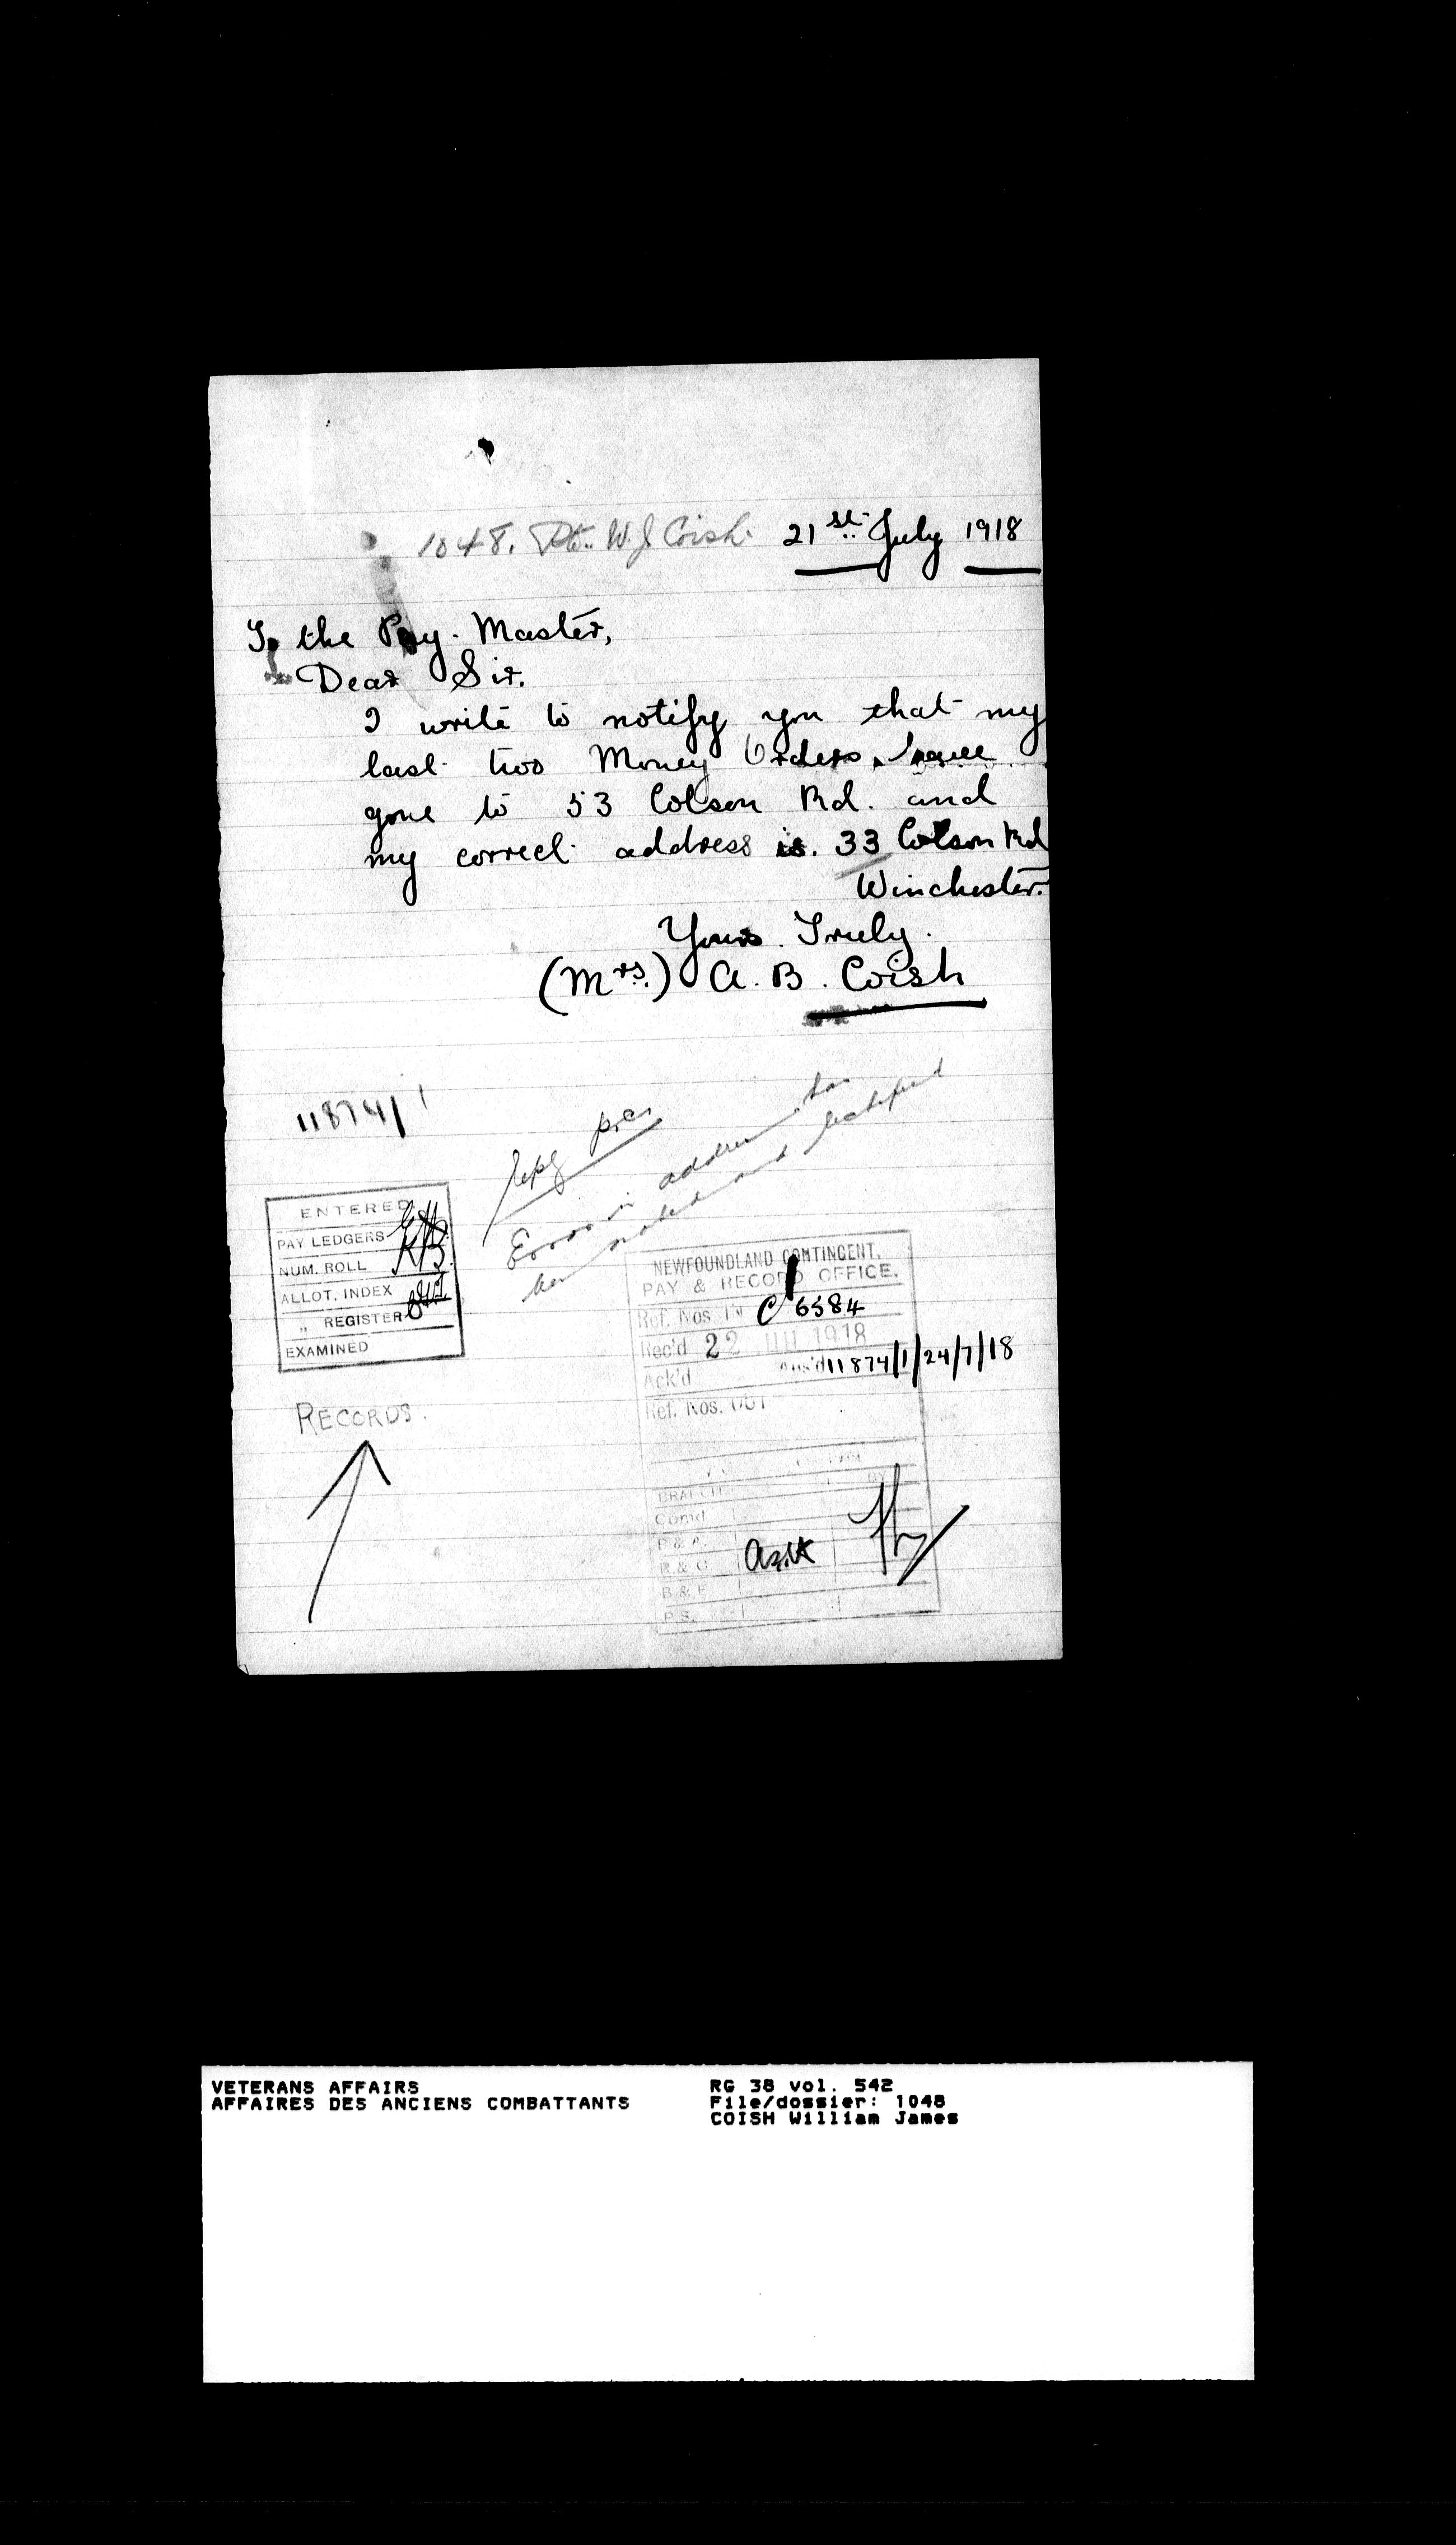 1048. Pte. W. J Coish. 21st July 1918
To the Pay. Master,
Dear Sir.
I write to notify you that my
last two Money Orders, have
gone to 53 Colson Rd. and
my correct address is. 33 Colson Rd
Winchester.
Yours Truly.
(Mrs.) A. B. Coish
11874/1
Error in address has
been noted and rectified
ENTERED
PAY LEDGERS
NUM. ROLL KB.
ALLOT. INDEX
„ REGISTER
EXAMINED
NEWFOUNDLAND CONTINGENT.
PAY & RECORD OFFICE.
Ref. Nos IN C 6584
Rec'd 22 JUL 1918
Ack'd Ans'd 11874/1/24/7/18
Ref. Nos. OUT
RECORDS.
BRANCH BY
Comd
P & A.
R. & C.
B & F
P.S.
VETERANS AFFAIRS
AFFAIRES DES ANCIENS COMBATTANTS
RG 38 vol. 542
File/dossier: 1048
COISH William James